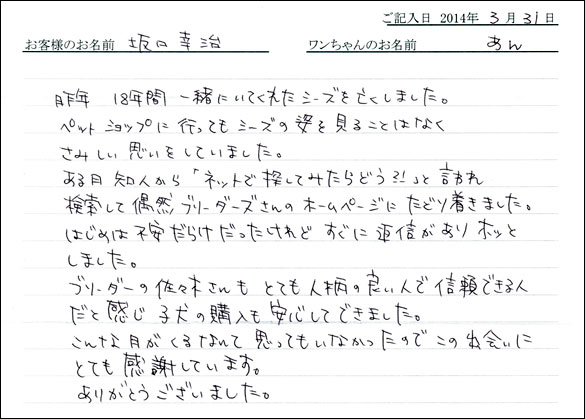 ご記入日 2014年 3月 31日
お客様のお名前 坂口 幸治 ワンちゃんのお名前 あん
昨年 18年間 一緒にいてくれたシーズを亡くしました。
ペットショップに行ってもシーズの姿を見ることはなく
さみしい思いをしていました。
ある日 知人から「ネットで探してみたらどう?!」と言われ
検索して偶然ブリーダーズさんのホームページにたどり着きました。
はじめは不安だらけだったけれど すぐに返信がありホッと
しました。
ブリーダーの佐々木さんも とても人柄の良い人で信頼できる人
だと感じ 子犬の購入も安心してできました。
こんな日がくるなんて思ってもいなかったのでこの出会いに
とても感謝しています。
ありがとうございました。